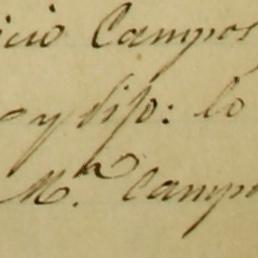 icio Campos
y dijo: lo
M.n Campo